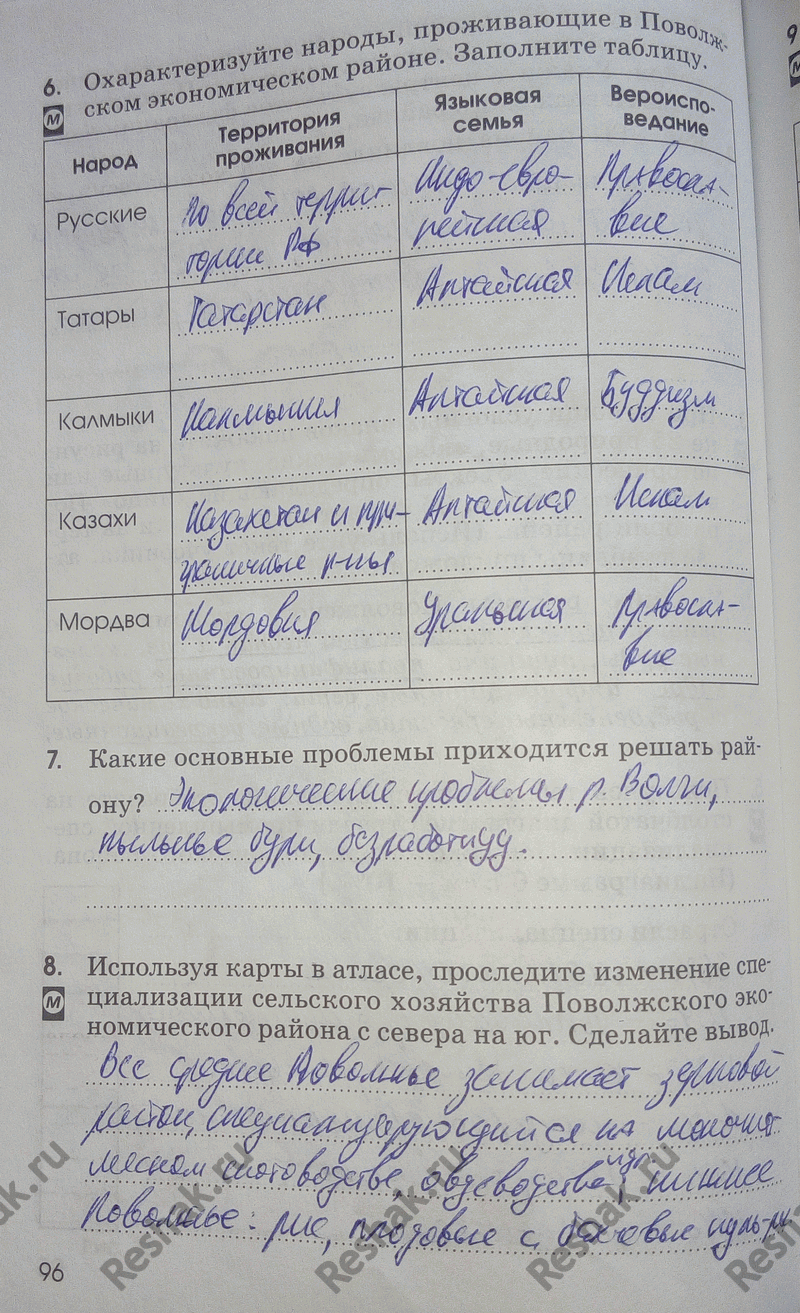 6. Охарактеризуйте народы, проживающие в Поволж-
ском экономическом районе. Заполните таблицу.
М
Народ
Территория проживания
Языковая семья
Вероиспо-
ведание
Русские
По всей терри-
тории РФ
Индо-евро-
пейская
Правосла-
вие
Татары
Татарстан
Алтайская
Ислам
Калмыки
Калмыкия
Алтайская
Буддизм
Казахи
Казахстан и при-
граничные р-ны
Алтайская
Ислам
Мордва
Мордовия
Уральская
Правосла-
вие
7. Какие основные проблемы приходится решать рай-
ону? Экологические проблемы р. Волги,
пыльные бури, безработицу.
8. Используя карты в атласе, проследите изменение спе-
М
циализации сельского хозяйства Поволжского эко-
номического района с севера на юг. Сделайте вывод.
Все среднее Поволжье занимает зерновой
район, специализирующийся на молочно
мясном скотоводстве, овцеводстве, нижнее
Поволжье: рис, плодовые и бахчевые
96
Reshak.ru
Reshak.ru
Reshak.ru